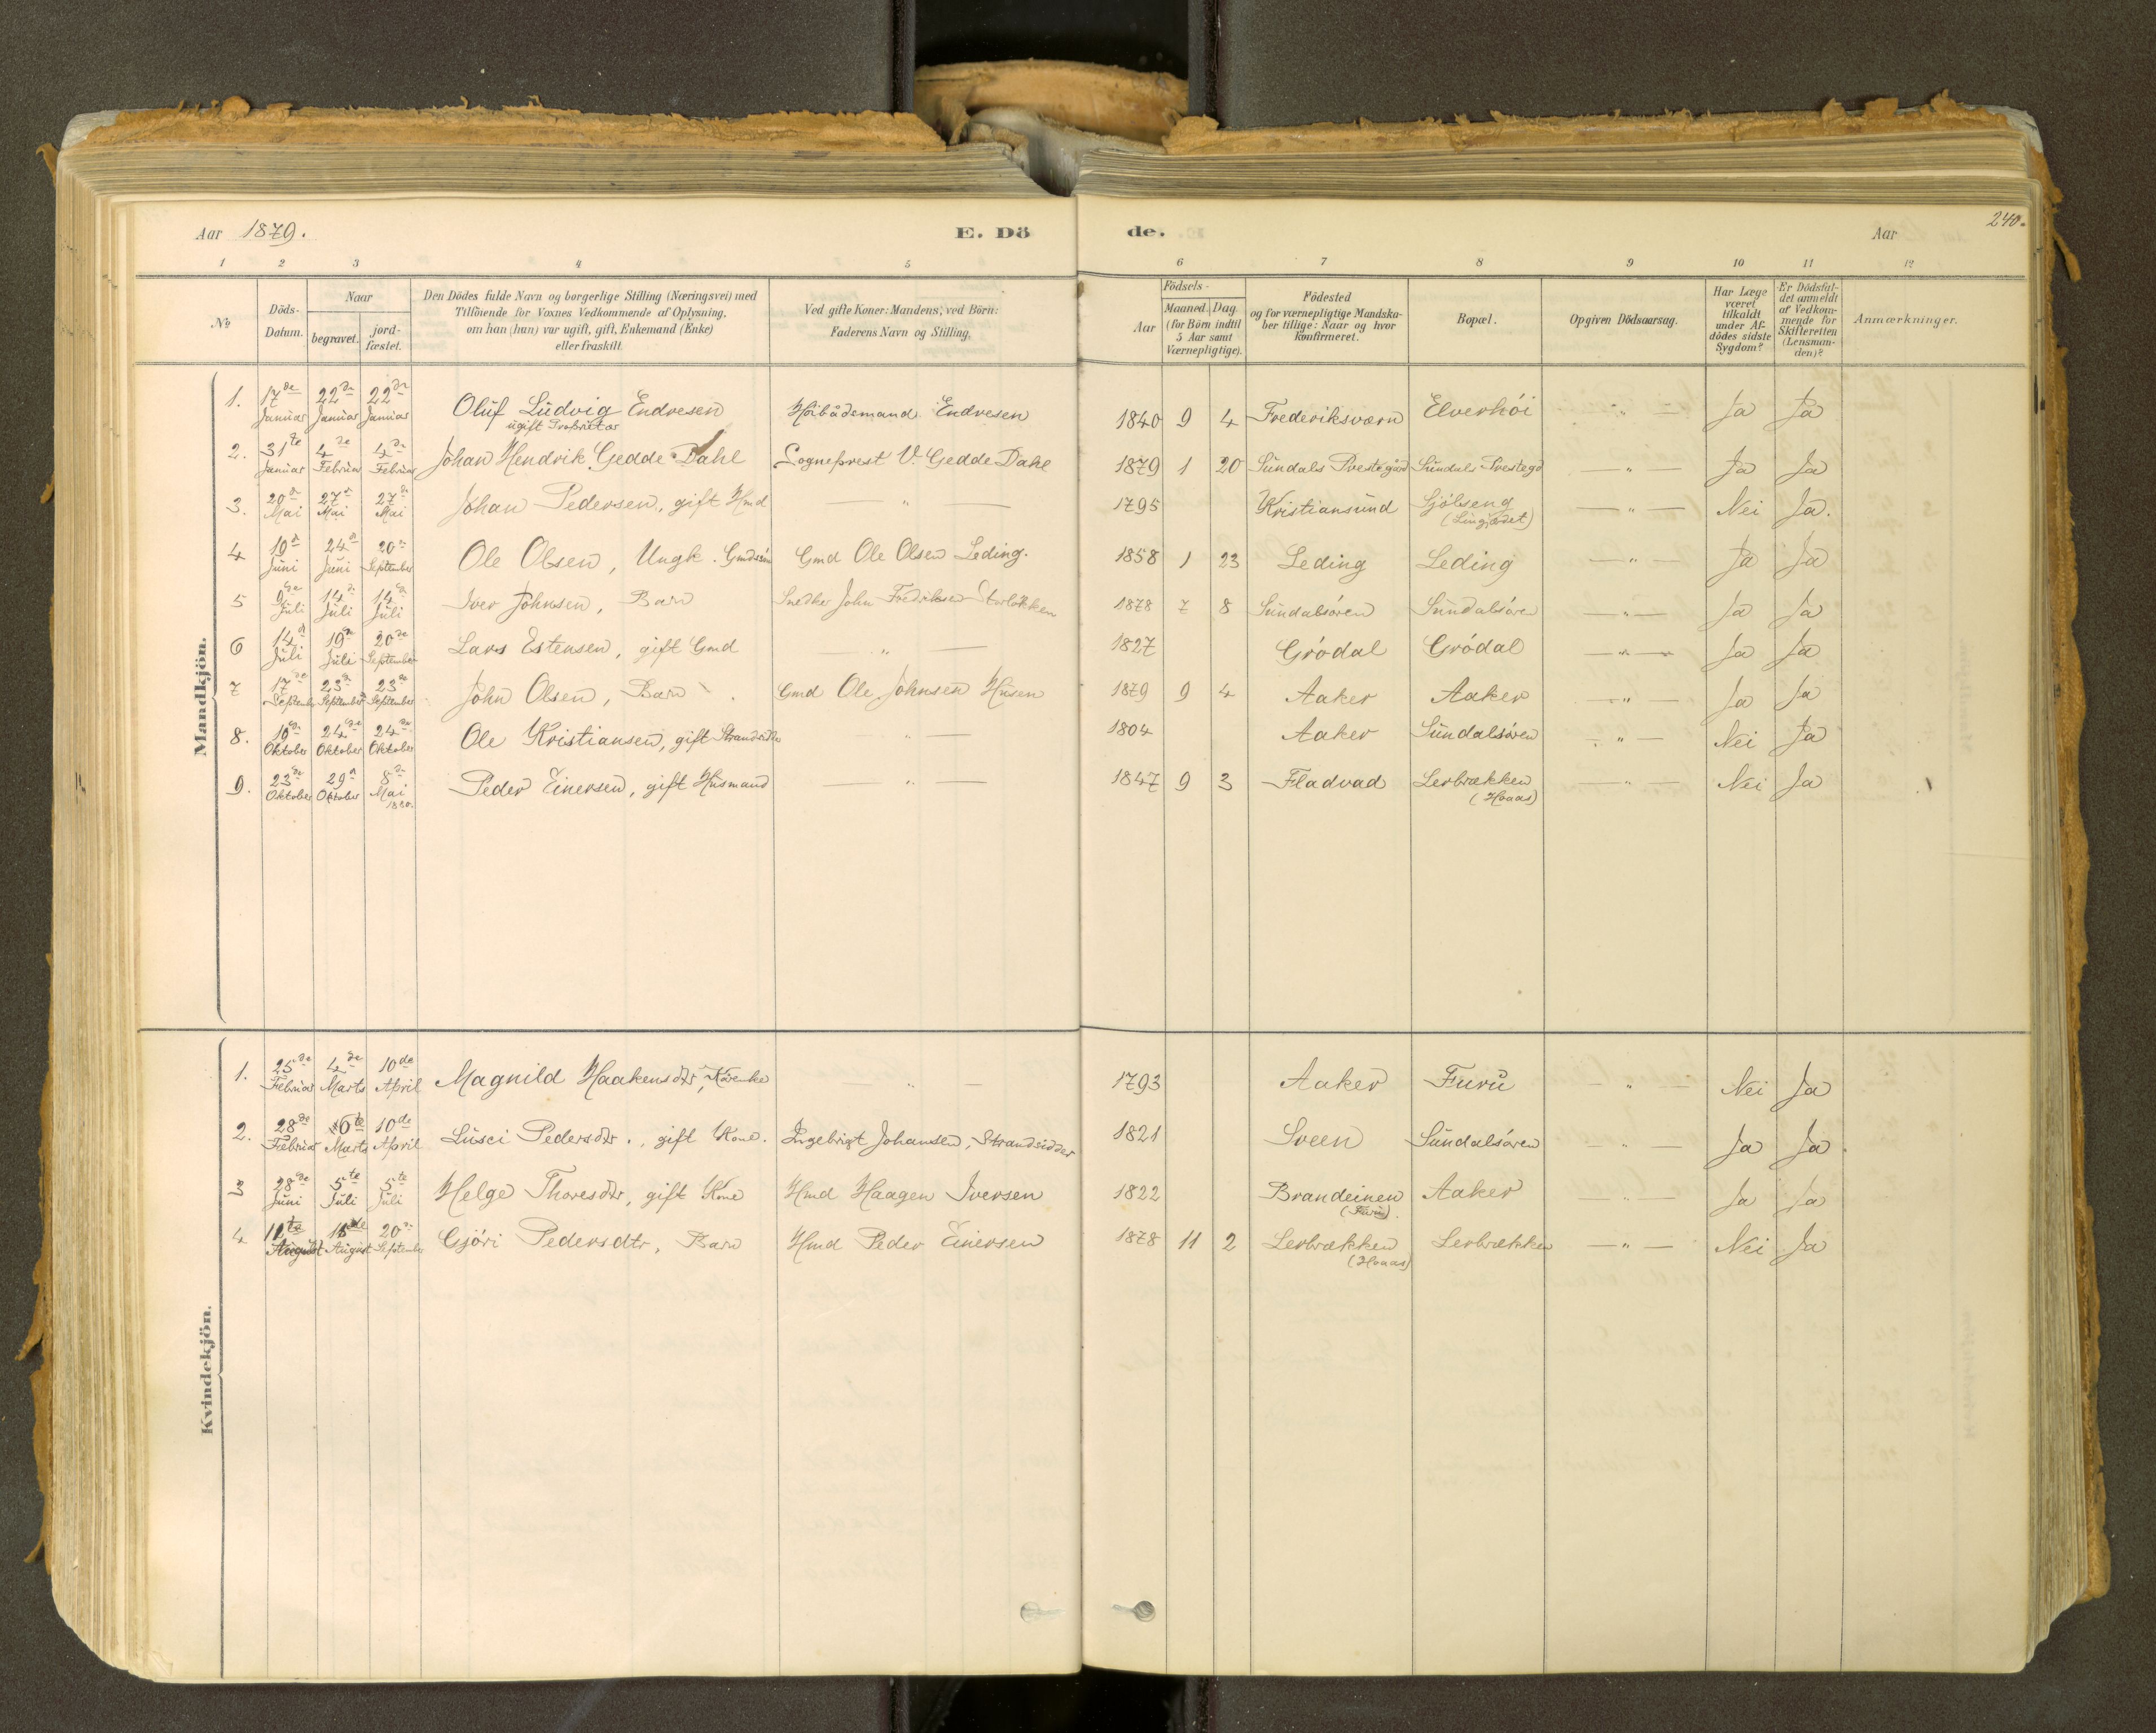 Aar 1879. E. Dö de. Aar 240.
1 2 3 4 5 6 7 8 9 10 11 12
No
Döds-Datum.
Naar
begravet.
jord-fæstet.
Den Dödes fulde Navn og borgerlige Stilling (Næringsvei) med
Tilföiende for Voxnes Vedkommende af Oplysning,
om han (hun) var ugift, gift, Enkemand (Enke)
eller fraskilt.
Ved gifte Koner: Mandens; ved Börn:
Faderens Navn og Stilling.
Födsels-
Aar
Maaned. Dag
(for Börn indtil
5 Aar samt
Værnepligtige).
Födested
og for værnepligtige Mandska-
ber tillige: Naar og hvor
konfirmeret.
Bopæl.
Opgiven Dödsaarsag.
Har Læge
været
tilkaldt
under Af-
dödes sidste
Sygdom?
Er Dödsfal-
det anmeldt
af Vedkom-
mende for
Skifteretten
(Lensman-
den)?
Anmærkninger.
Mandkjön.
1. 17de Januar 22de Januar 22de Januar Oluf Ludvig Endresen Endresen 1840 9 4 Frederiksværn Elverhöi — " — Ja Ja
ugift Proprietær
2. 31te Januar 4de Februar 4de Februar Johan Hendrik Gedde Dahl Sogneprest V. Gedde Dahl 1879 1 20 Sundals Prestegård Sundals Prestegd — " — Ja Ja
3. 20de Mai 27de Mai 27de Mai Johan Pedersen, gift Hmd — " — 1795 Kristiansund Sjölseng — " — Nei Ja.
4 19de Juni 24de Juni 20de September Ole Olsen, Ungk. Gmdssön Gmd Ole Olsen Leding. 1858 1 23 Leding Leding — " — Ja Ja
5 9de Juli 14de Juli 14de Juli Iver Johnsen, Barn Snedker John Fredriksen Storlökken 1878 7 8 Sundalsören Sundalsören — " — Ja Ja
6 14de Juli 19de Juli 20de September Lars Estensen, gift Gmd — " — 1827 Grödal Grödal — " — Ja Ja
7 17de September 23de September 23de September John Olsen, Barn Gmd Ole Johnsen Husen 1879 9 4 Aaker Aaker — " — Ja Ja
8. 16de Oktober 24de Oktober 24de Oktober Ole Kristiansen, gift Strandsidder — " — 1804 Aaker Sundalsören — " — Nei Ja
9. 23de Oktober 29de Oktober 8de Mai 1880. Peder Einersen, gift Husmand — " — 1847 9 3 Fladvad Lerbrækken — " — Nei Ja
(Hoaas)
Kvindekjön.
1. 25de Februar 4de Marts 10de April Magnild Haakensdtr, Kårenke " 1793 Aaker Furu — " — Nei Ja
2. 28de Februar 6te Marts 10de April Lusci Pedersdtr., gift Kone. Ingebrigt Johansen, Strandsidder 1821 Sveen Sundalsören — " — Ja Ja.
3 28de Juni 5te Juli 5te Juli Helge Thoresdtr, gift Kone Hmd Haagen Iversen 1822 Brandeinen Aaker — " — Ja Ja
(Furu).
4 11te August August 20de September Gjöri Pedersdtr, Barn Hmd Peder Einersen 1878 11 2 Lerbrækken Lerbrækken — " — Nei Ja
(Hoaas)